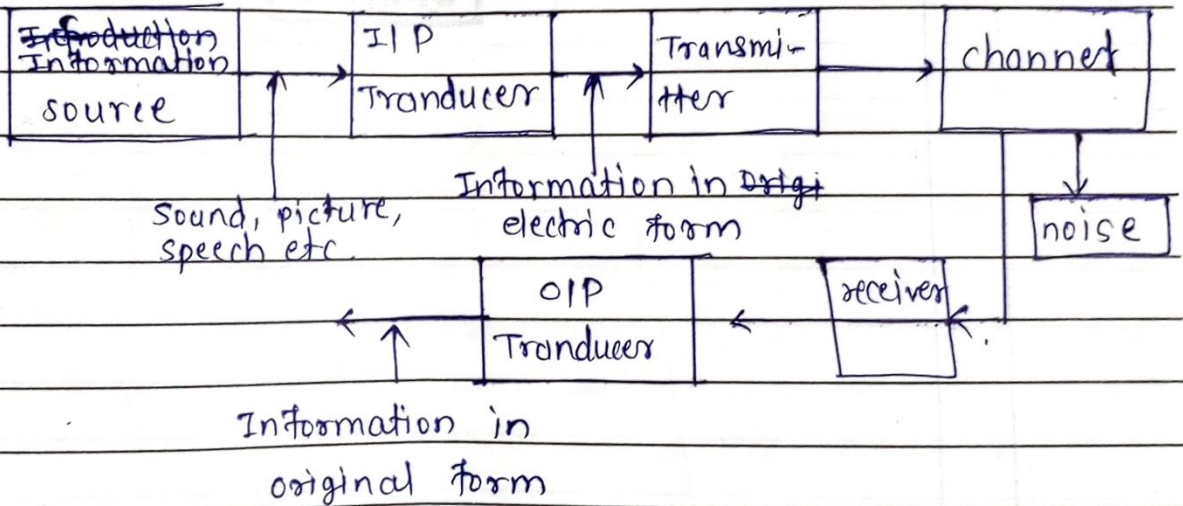 Introduction
Information
source
I/P
Tranducer
Transmi-
tter
channel
Sound, picture,
speech etc.
Information in Origi
electric form
noise
O/P
Tranducer
receiver
Information in
original form